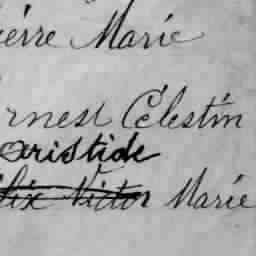 ierre Marie
rnest Célestin
aristide
lix Victor Marie